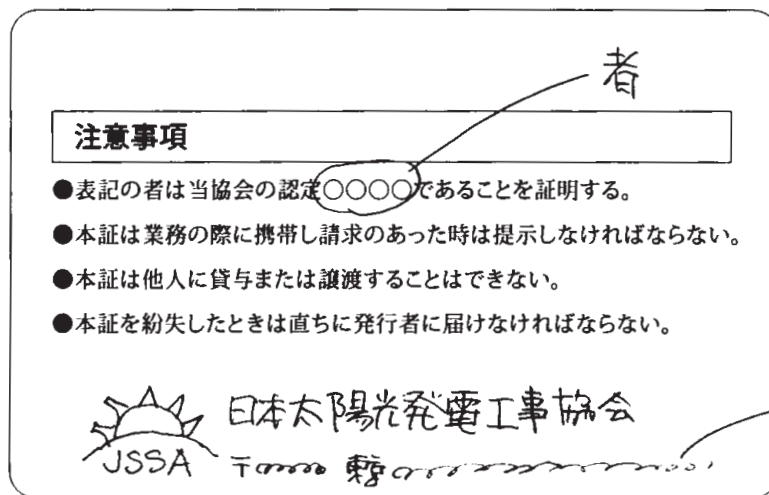 者
注意事項
●表記の者は当協会の認定○○○○であることを証明する。
●本証は業務の際に携帯し請求のあった時は提示しなければならない。
●本証は他人に貸与または譲渡することはできない。
●本証を紛失したときは直ちに発行者に届けなければならない。
日本太陽光発電工事協会
JSSA 〒